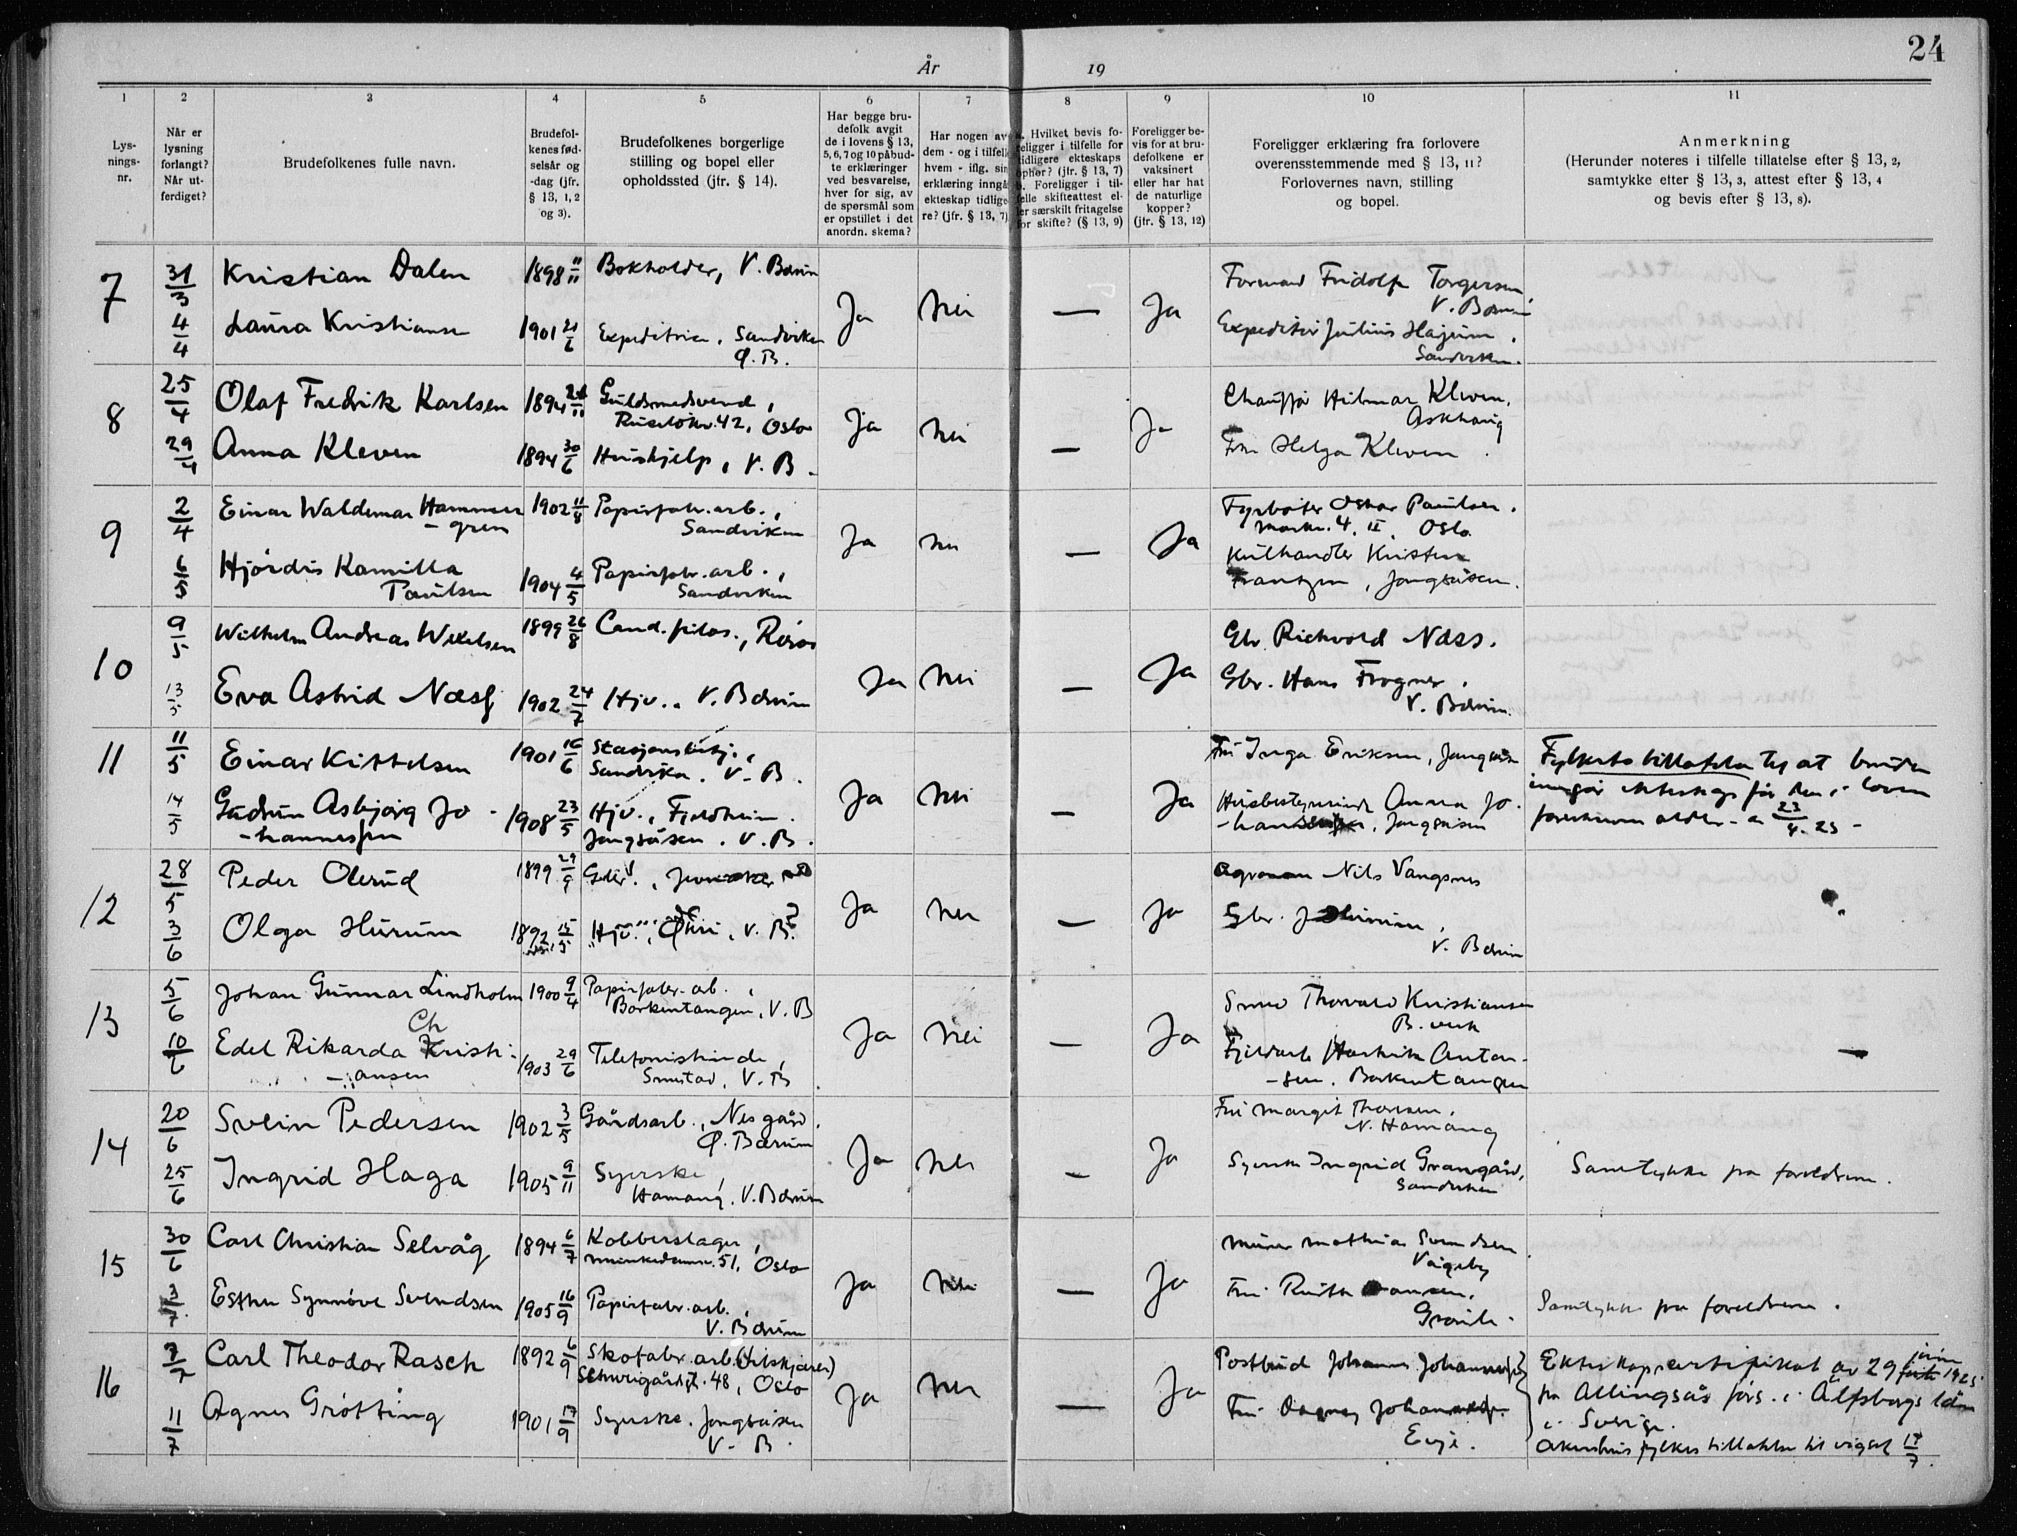 24
År 19
1 2 3 4 5 6 7 8 9 10 11
Lys-
nings-
nr.
Når er
lysning
forlangt?
Når ut-
ferdiget?
Brudefolkenes fulle navn.
Brudefol-
kenes fød-
selsår og
-dag (jfr.
§ 13, 1, 2
og 3).
Brudefolkenes borgerlige
stilling og bopel eller
opholdssted (jfr. § 14).
Har begge bru-
defolk avgit
de i lovens § 13,
5, 6, 7 og 10 påbud-
te erklæringer
ved besvarelse,
hver for sig, av
de spørsmål som
er opstillet i det
anordn. skema?
Har nogen av
dem - og i tilfelle
hvem - iflg. sin
erklæring inngå
ekteskap tidlige-
re? (jfr. § 13, 7)
Hvilket bevis fo-
religger i tilfelle for
tidligere ekteskaps
ophør? (jfr. § 13, 7)
b. Foreligger i til-
felle skifteattest el-
ler særskilt fritagelse
for skifte? (§ 13, 9)
Foreligger be-
vis for at bru-
defolkene er
vaksinert
eller har hat
de naturlige
kopper?
(jfr. § 13, 12)
Foreligger erklæring fra forlovere
overensstemmende med § 13, 11?
Forlovernes navn, stilling
og bopel.
Anmerkning
(Herunder noteres i tilfelle tillatelse efter § 13, 2,
samtykke efter § 13, 3, attest efter § 13, 4
og bevis efter § 13, 8).
7 31/3 Kristian Dalen 1898 11/11 Bokholder, V. Bærum Formand Fridolf Torgersen,
V. Bærum
4/4 Laura Kristiansen 1901 21/6 Expeditrice, Sandviken
Ø. B. Ja Nei — Ja Expeditør Julius
Sandviken.
8 25/4 Olaf Fredrik Karlsen 1894 Guldsmedsvend,
42, Oslo Ja Nei — Ja Chauffør Hilmar Kleven,
29/4 Anna Kleven 1894 30/6 Hushjelp, V. B. Fru Helga Kleven
9 2/4 Einar Waldemar Hammer
- gren 1902 11/8 Papirfabr. arb.,
Sandviken Ja Nei — Ja Fyrbøter Oskar Paulsen.
4, II, Oslo
6/5 Hjørdis Kamilla
Paulsen 1904 4/5 Papirfabr. arb.,
Sandviken Kulhandler Kristen
Frantzen, Jongsåsen.
10 9/5 Wilhelm Andreas Wexelsen 1899 26/8 Cand. filos., Røros Gbr. Richvold Næss.
13/5 Eva Astrid Næss 1902 24/7 Hjv., V. Bærum Ja Nei — Ja Gbr. Hans Frogner,
V. Bærum.
11 11/5 Einar Kittelsen 1901 16/6 Stasjonsbetj.,
Sandvika, V. B. Ja Nei — Ja Fru Inga Eriksen, Jongsåsen Fylkets tillatelse til at bruden
inngår ekteskap før den i loven
14/5 Gudrun Asbjørg Jo-
- hannessen 1908 23/5 Hjv., Fjeldheim,
Jongsåsen, V. B. Husbestyrerinde Anna Jo-
- hannessen, Jongsåsen alder - 23/4. 25 -
12 28/5 Peder Olerud 1899 29/9 Gbr., Agronom Nils Vangsnes
3/6 Olga Hurum 1892 15/5 Hjv., V. B. Ja Nei — Ja Gbr. J. Hurum,
V. Bærum
13 5/6 Johan Gunnar Lindholm 1900 9/4 Papirfabr. arb.,
Borkentangen, V. B Ja Nei — Ja Smed Thorvald Kristiansen
B. verk
10/6 Edel Rikarda Christi-
- ansen 1903 29/6 Telefonistinde,
Smestad, V. B Anton-
- sen, Borkentangen —
14 20/6 Svein Pedersen 1902 3/5 Gårdsarb., Nes gård,
Ø. Bærum Fru Margit Thoresen,
N. Hamang
25/6 Ingrid Haga 1905 9/11 Syerske,
Hamang, V. Bærum Ja Nei — Ja Syerske Ingrid Grangård,
Sandviken Samtykke fra foreldrene.
15 30/6 Carl Christian Selvåg 1894 6/7 Kobberslager,
Munkedamsv. 51, Oslo Ja Nei — Ja Murer Mathias Svendsen
3/7 Esther Synnøve Svendsen 1905 16/9 Papirfabr. arb.,
V. Bærum Fru Ruth Hansen, Samtykke fra foreldrene.
16 7/7 Carl Theodor Rasch 1892 6/9 Skofabr. arb. (tilskjærer)
Schweigårdsgt. 48, Oslo Ja Nei — Ja Postbud Johannes Johannessen Ekteskapscertifikat av 29 juni 1925
fra Allingsås förs. i Älfsborgs län
i Sverige.
11/7 Agnes Grøtting 1901 17/9 Syerske, Jongsåsen
V. B. Fru Dagny Johannessen
Evje. Akershus fylkes tillatelse til vigsel 17/7.